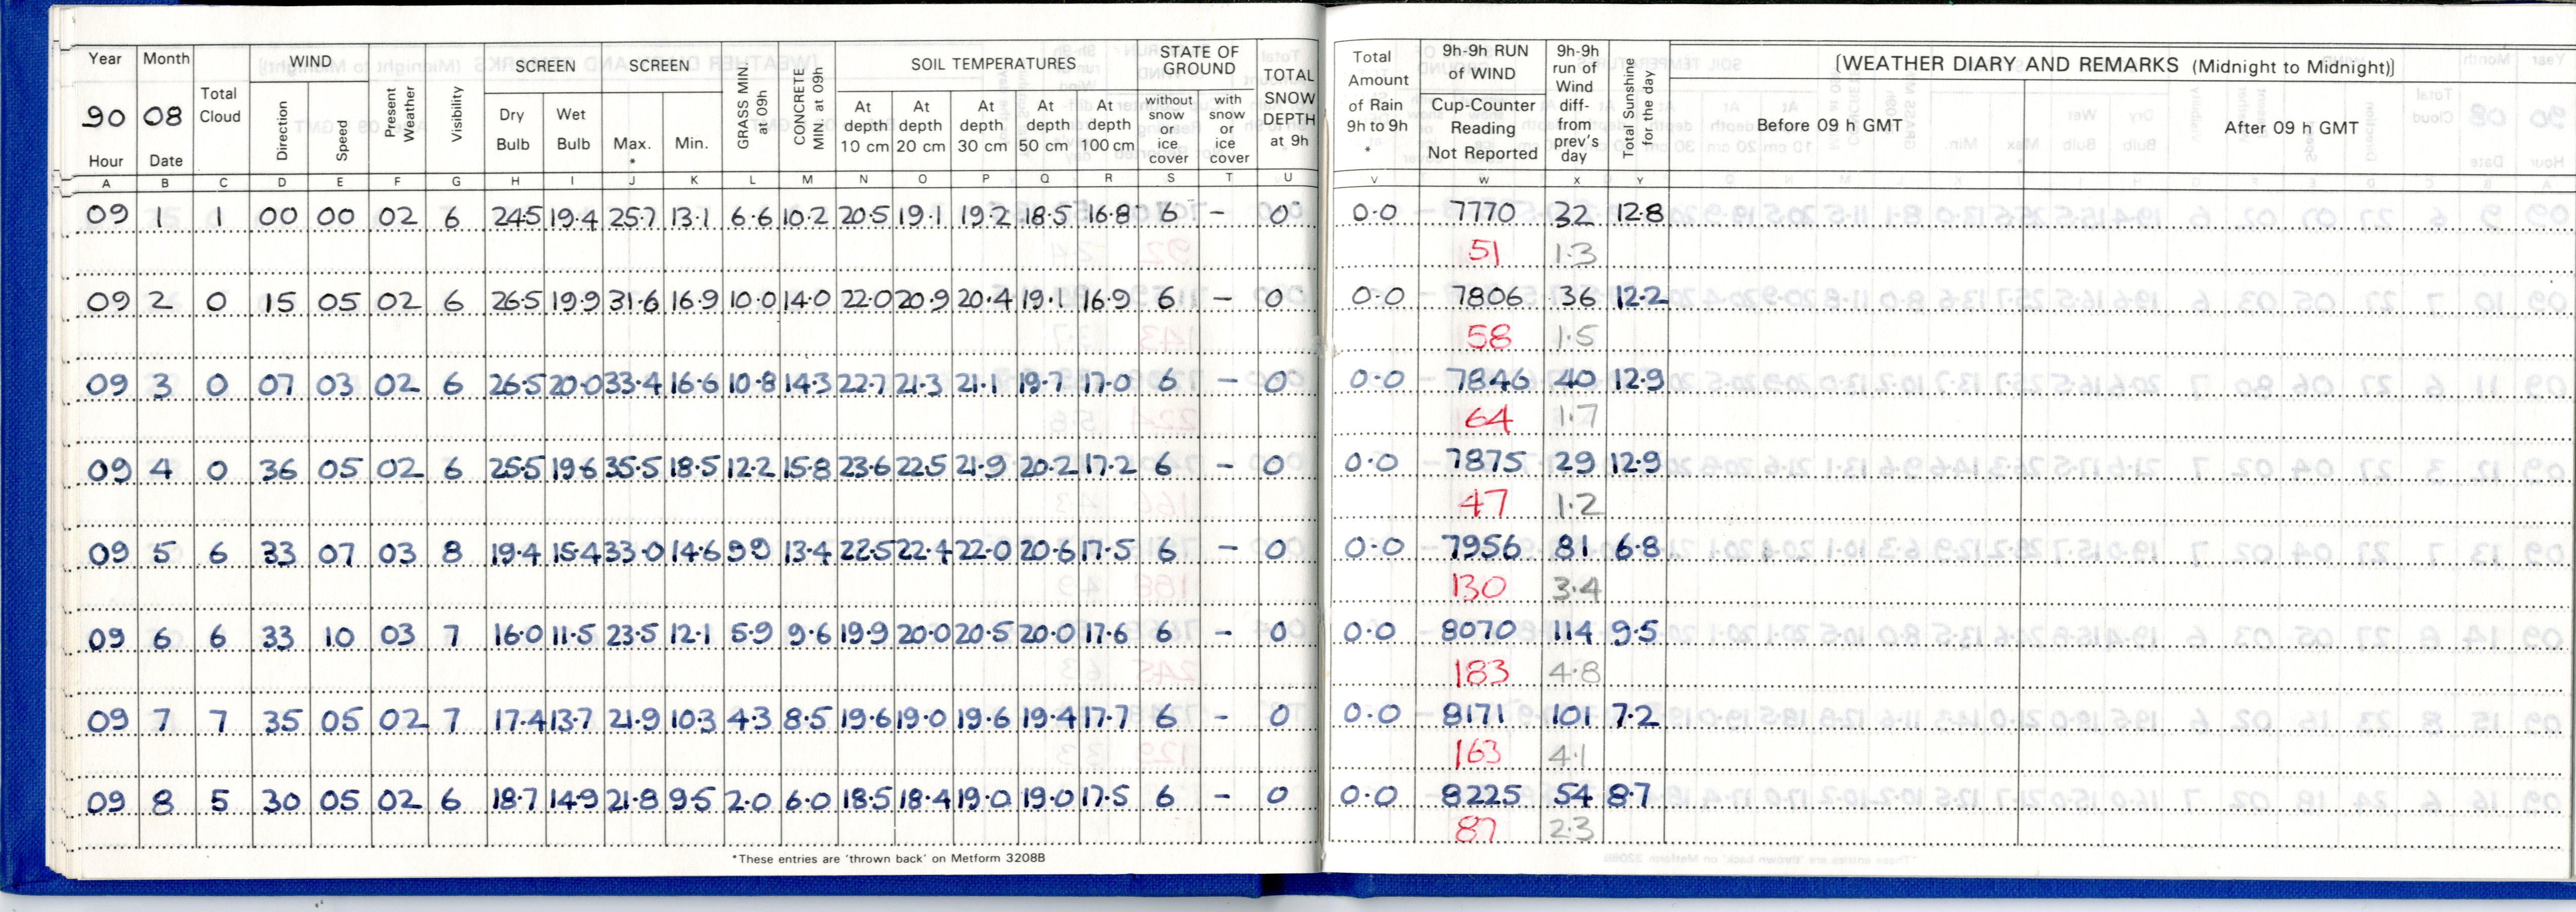 Year Month WIND Present Weather Visibility SCREEN SCREEN GRASS MIN. at 09h CONCRETE MIN. at 09h SOIL TEMPERATURES STATE OF GROUND TOTAL SNOW DEPTH at 9h Total Amount of Rain 9h to 9h * 9h-9h RUN of WIND 9h-9h run of Wind diff- from prev's day Total Sunshine for the day [WEATHER DIARY AND REMARKS (Midnight to Midnight)]
90 08 Total Cloud Direction Speed Dry Bulb Wet Bulb Max. * Min. At depth 10 cm At depth 20 cm At depth 30 cm At depth 50 cm At depth 100 cm without snow or ice cover with snow or ice cover Cup-Counter Reading Not Reported Before 09 h GMT After 09 h GMT
Hour Date
A B C D E F G H I J K L M N O P Q R S T U V W X Y
09 1 1 00 00 02 6 24.5 19.4 25.7 13.1 6.6 10.2 20.5 19.1 19.2 18.5 16.8 6 - 0 0.0 7770 32 12.8
51 1.3
09 2 0 15 05 02 6 26.5 19.9 31.6 16.9 10.0 14.0 22.0 20.9 20.4 19.1 16.9 6 - 0 0.0 7806 36 12.2
58 1.5
09 3 0 07 03 02 6 26.5 20.0 33.4 16.6 10.8 14.3 22.7 21.3 21.1 19.7 17.0 6 - 0 0.0 7846 40 12.9
64 1.7
09 4 0 36 05 02 6 25.5 19.6 35.5 18.5 12.2 15.8 23.6 22.5 21.9 20.2 17.2 6 - 0 0.0 7875 29 12.9
47 1.2
09 5 6 33 07 03 8 19.4 15.4 33.0 14.6 9.9 13.4 22.5 22.4 22.0 20.6 17.5 6 - 0 0.0 7956 81 6.8
130 3.4
09 6 6 33 10 03 7 16.0 11.5 23.5 12.1 5.9 9.6 19.9 20.0 20.5 20.0 17.6 6 - 0 0.0 8070 114 9.5
183 4.8
09 7 7 35 05 02 7 17.4 13.7 21.9 10.3 4.3 8.5 19.6 19.0 19.6 19.4 17.7 6 - 0 0.0 8171 101 7.2
163 4.1
09 8 5 30 05 02 6 18.7 14.9 21.8 9.5 2.0 6.0 18.5 18.4 19.0 19.0 17.5 6 - 0 0.0 8225 54 8.7
87 2.3
*These entries are 'thrown back' on Metform 3208B